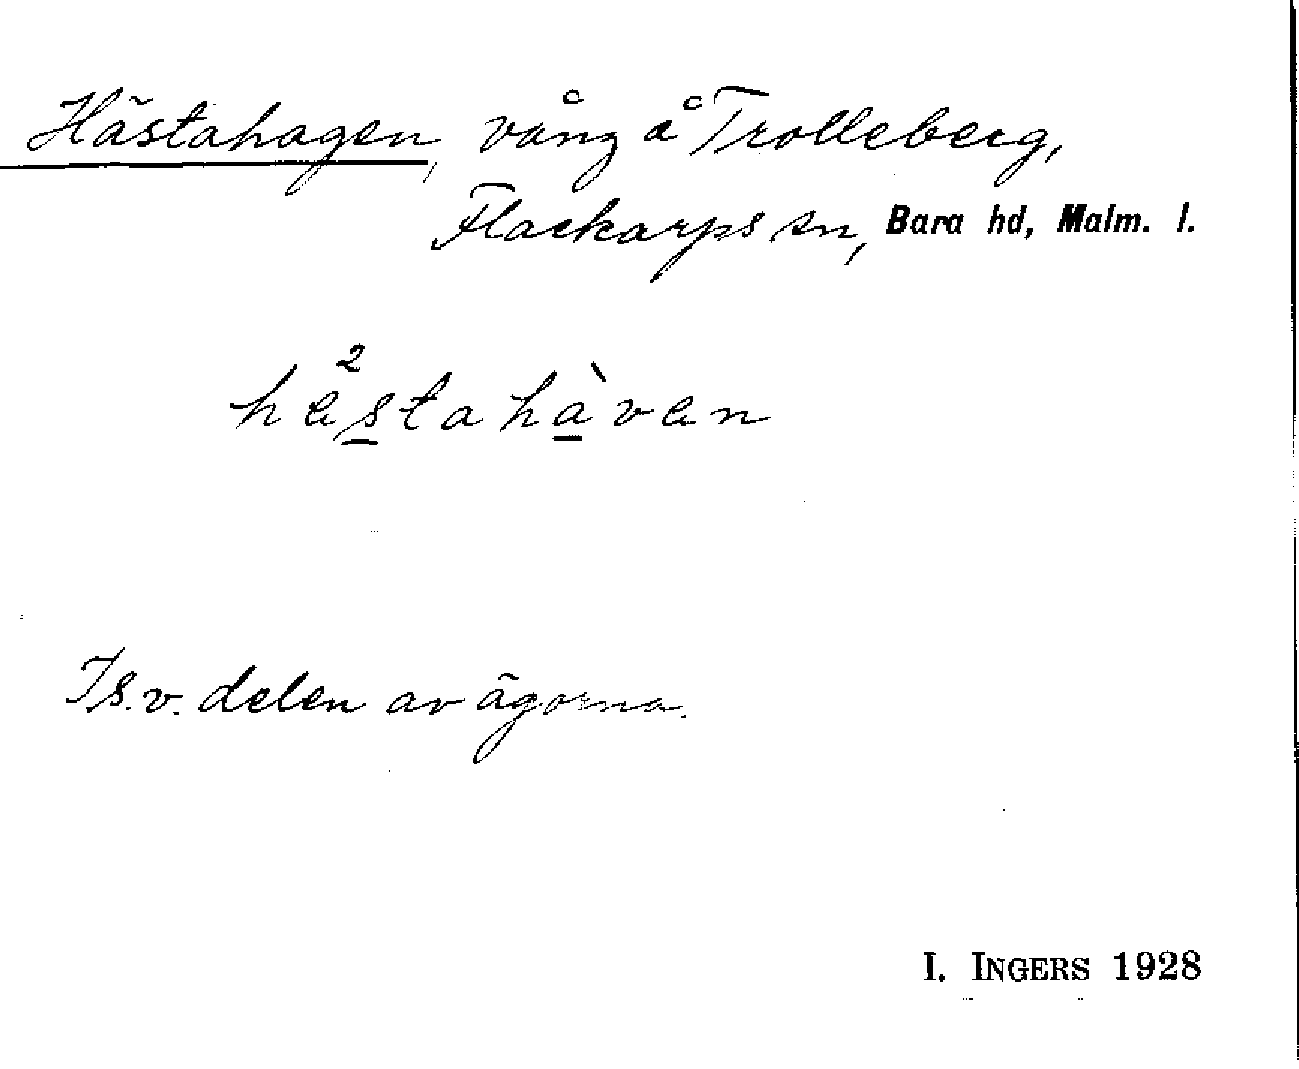 Hästahagen, vång å Trolleberg,
Flackarps sn, Bara hd, Malm. l.
hästahàven
I s.v. delen av ägorna.
I. INGERS 1928